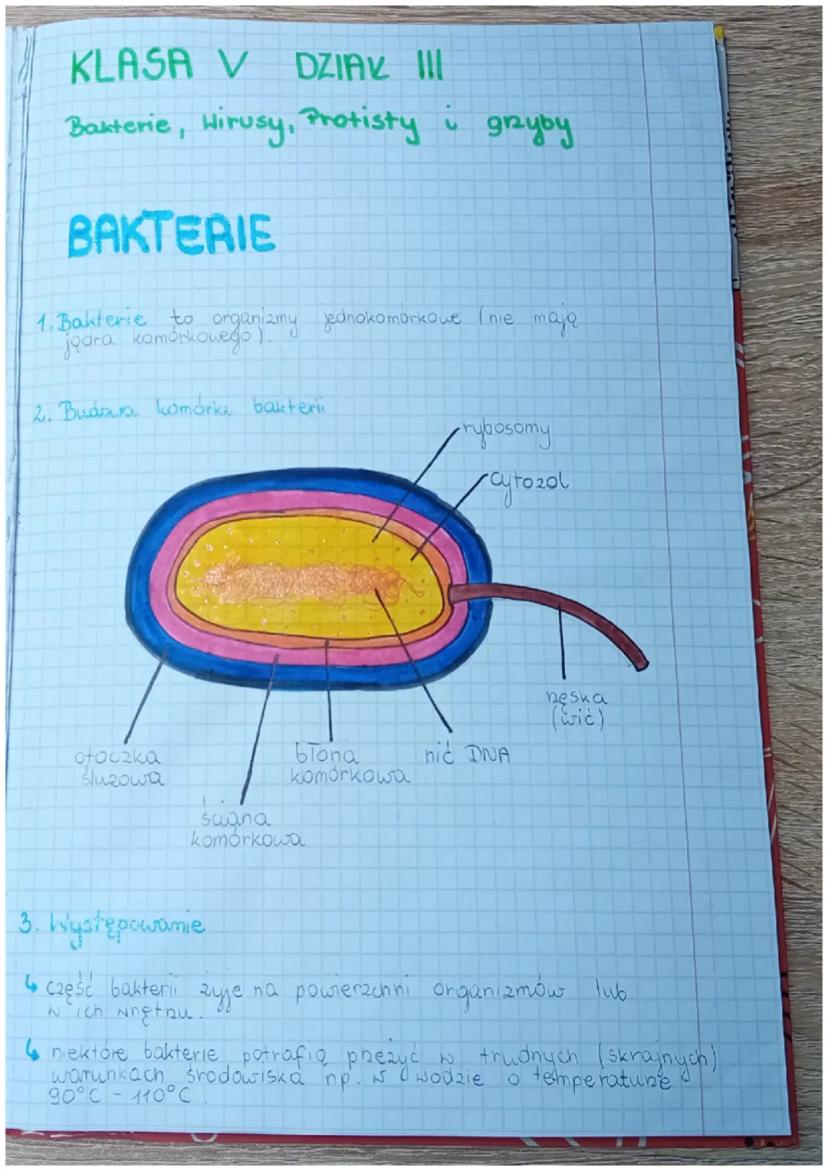 KLASA V DZIAŁ III
Bakterie, Wirusy, Protisty i grzyby
BAKTERIE
1. Bakterie to organizmy jednokomórkowe (nie mają
jądra komórkowego).
2. Budowa komórki bakterii
rybosomy
cytozol
rzęska
(wić)
otoczka
śluzowa
błona
komórkowa
nić DNA
ściana
komórkowa
3. Występowanie
↳ część bakterii żyje na powierzchni organizmów lub
w ich wnętrzu.
↳ niektóre bakterie potrafią przeżyć w trudnych (skrajnych)
warunkach środowiska np. w wodzie o temperaturze
90°C - 110°C.